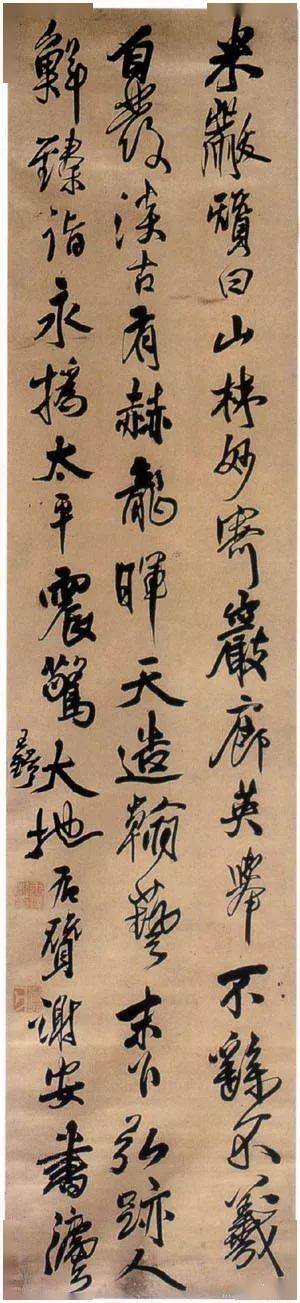 米黻贊曰山林妙寄巖廊英舉不繇不羲
自發淡古有赫龍暉天造翰藝末弘跡人
鮮臻詣永播太平震驚大地右贊謝安書
王鐸